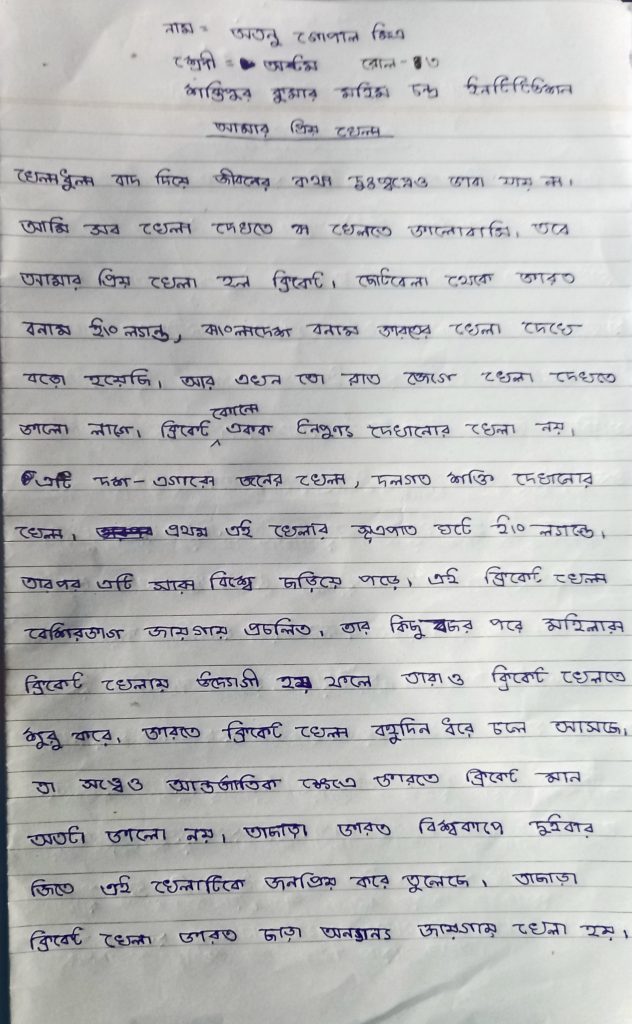 নাম = অতনু গোপাল মিত্র
শ্রেণী = অষ্টম রোল - ১৩
শান্তিপুর কুমার মহিম চন্দ্র ইনস্টিটিউশন
আমার প্রিয় খেলা
খেলাধুলা বাদ দিয়ে জীবনের কথা দুঃস্বপ্নেও ভাবা যায় না।
আমি সব খেলা দেখতে বা খেলতে ভালোবাসি, তবে
আমার প্রিয় খেলা হল ক্রিকেট, ছোটবেলা থেকে ভারত
বনাম ইংল্যান্ড, বাংলাদেশ বনাম ভারতের খেলা দেখে
বড়ো হয়েছি, আর এখন তো রাত জেগে খেলা দেখতে
ভালো লাগে, ক্রিকেট কোনো একক নৈপুণ্য দেখানোর খেলা নয়,
এটি দশ-এগারো জনের খেলা, দলগত শক্তি দেখানোর
খেলা, প্রথম এই খেলার সূত্রপাত ঘটে ইংল্যান্ডে,
তারপর এটি সারা বিশ্বে ছড়িয়ে পড়ে, এই ক্রিকেট খেলা
বেশিরভাগ জায়গায় প্রচলিত, তার কিছু বছর পরে মহিলারা
ক্রিকেট খেলায় উদ্যোগী হয় ফলে তারাও ক্রিকেট খেলতে
শুরু করে, ভারতে ক্রিকেট খেলা বহুদিন ধরে চলে আসছে,
তা সত্ত্বেও আন্তর্জাতিক ক্ষেত্রে ভারতে ক্রিকেট মান
অতটা ভালো নয়, তাছাড়া ভারত বিশ্বকাপে দুইবার
জিতে এই খেলাটিকে জনপ্রিয় করে তুলেছে, তাছাড়া
ক্রিকেট খেলা ভারত ছাড়া অন্যান্য জায়গায় খেলা হয়,